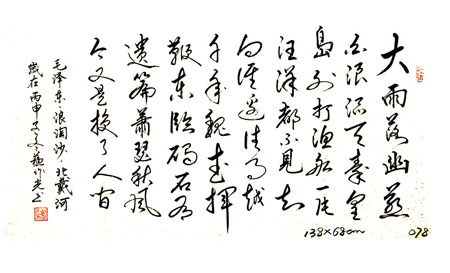 大雨落幽燕
白浪滔天秦皇
島外打渔船一片
汪洋都不見知
向誰邊往事越
千年魏武揮
鞭東臨碣石有
遺篇蕭瑟秋風
今又是換了人间
毛泽东浪淘沙北戴河
歲在丙申
138×68cm
078